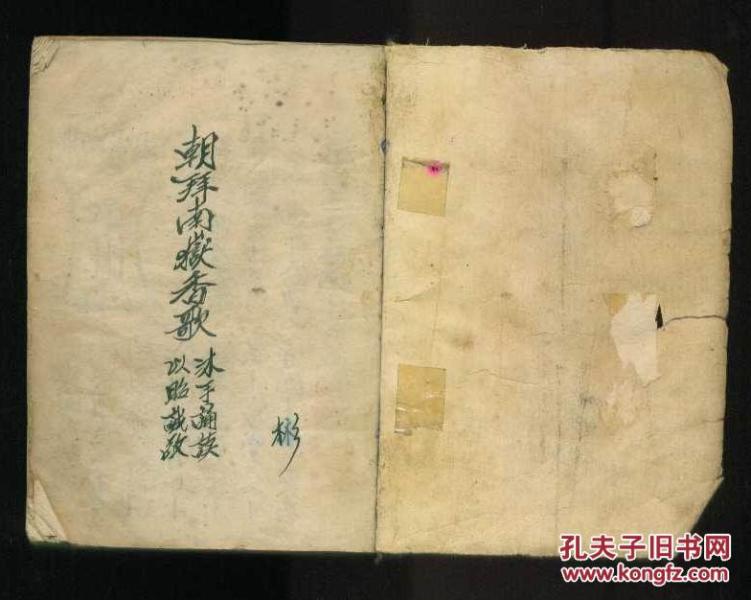 彬
朝拜南嶽香歌
沐手誦讀
以昭誠敬
孔夫子旧书网
www.kongfz.com